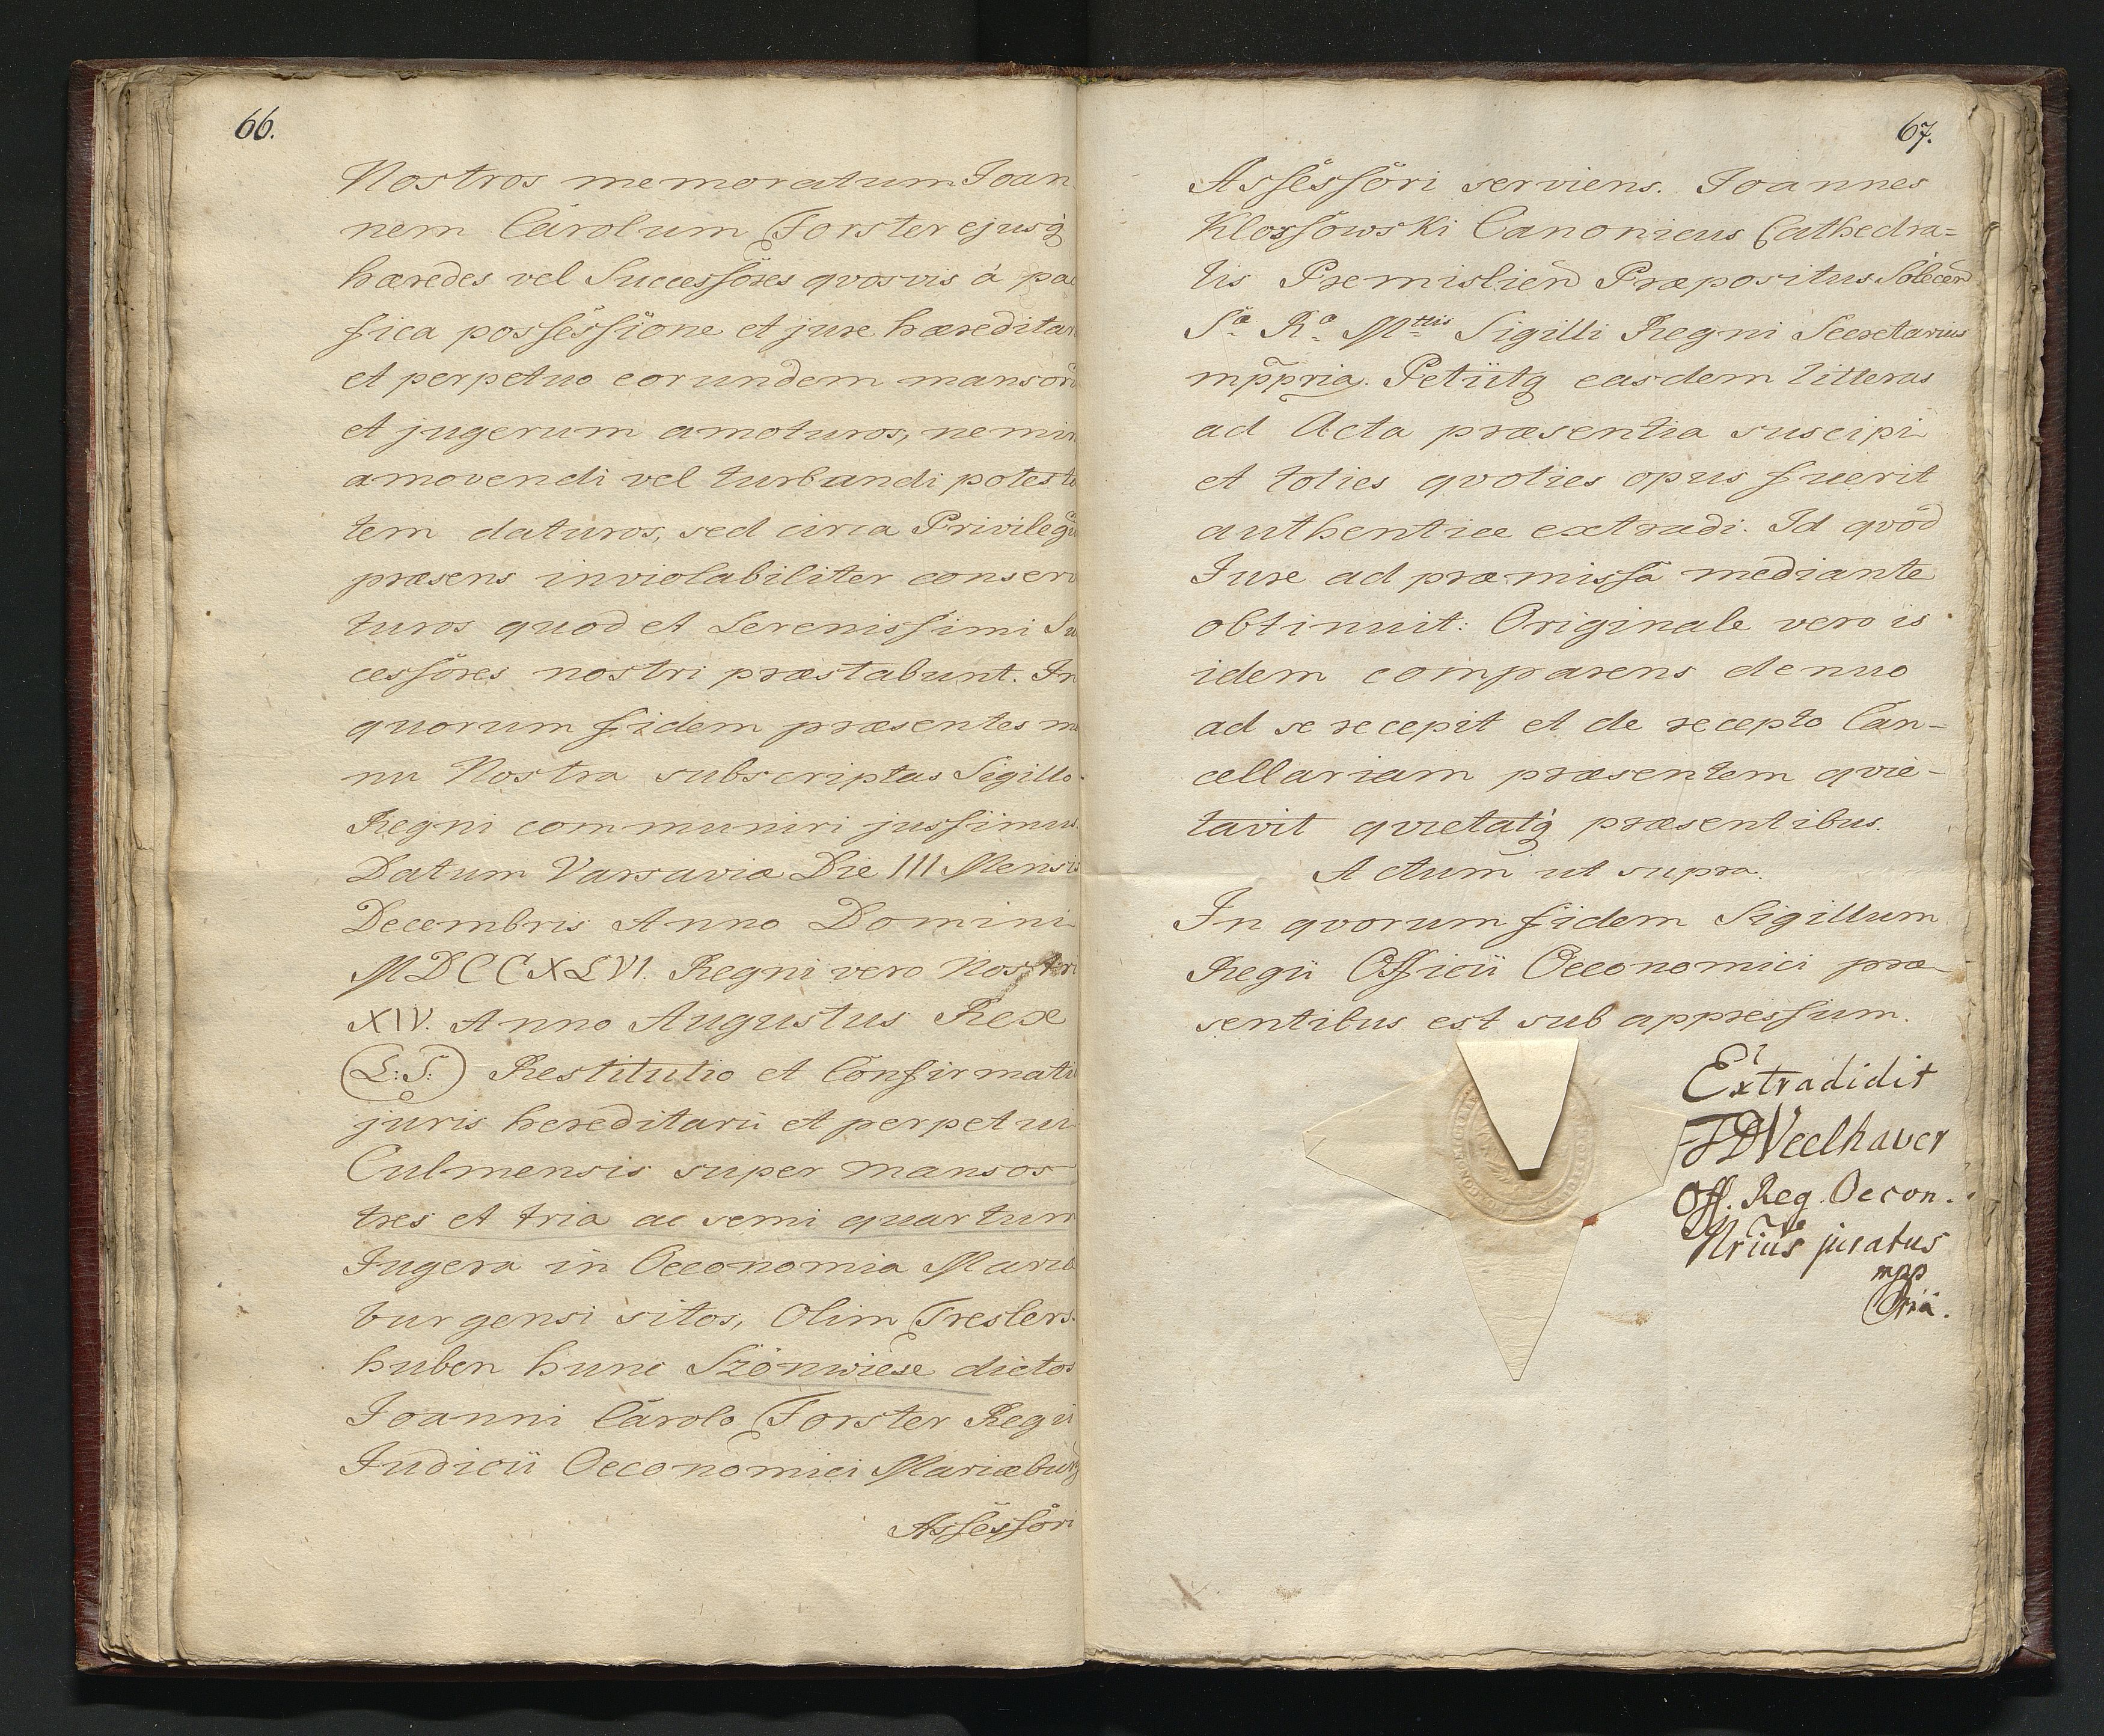 66.
Nostros memoratum Joan
nem Carolum Forster ejusq̃
hæredes vel Successores qvosvis à pa
fica possessione et jure hæreditar
et perpetuo eorundem mansor
et jugerum amoturos, nemin
amovendi vel turbandi potesta
tem daturos, sed circa Privilegiu
præsens inviolabiliter conserv
turos quod et Serenissimi Su
cessores nostri præstabunt. In
quorum fidem præsentes ma
nu Nostra subscriptas Sigillo
Regni communiri jussimus.
Datum Varsaviæ Die III Mensis
Decembris Anno Domini
MDCCXLVI. Regni vero Nostri
XIV. Anno Augustus Rex
L:S: Restitutio et Confirmatio
juris hereditarii et perpetui
Culmensis super mansos
tres et tria ac semi quartum
Jugera in Oeconomia Mariæ
burgensi sitos, Olim Treslers
huben hunc Szönwiese dictos
Joanni Carolo Forster Regii
Judicii Oeconomici Mariæburg
Assessori
67.
Assessori serviens. Joannes
Klossowski Canonicus Cathedra=
lis Premislien Præpositus Solecen
Sæ Ræ Mttis Sigilli Regni Secretarius
mppria. Petiitq̃ easdem litteras
ad Acta præsentia suscipi
et toties qvoties opus fuerit
authentice extradi. Id qvod
Jure ad præmissa mediante
obtinuit: Originale vero is
idem comparens denuo
ad se recepit et de recepto Can-
cellariam præsentem qvie-
tavit qvietatq̃ præsentibus.
Actum ut supra.
In qvorum fidem Sigillum
Regii Officii Oeconomici præ
sentibus est sub appressum.
Extradidit
JDWeelhaver
Off. Reg. Oecon.
Nrius juratus
mpp
ria.